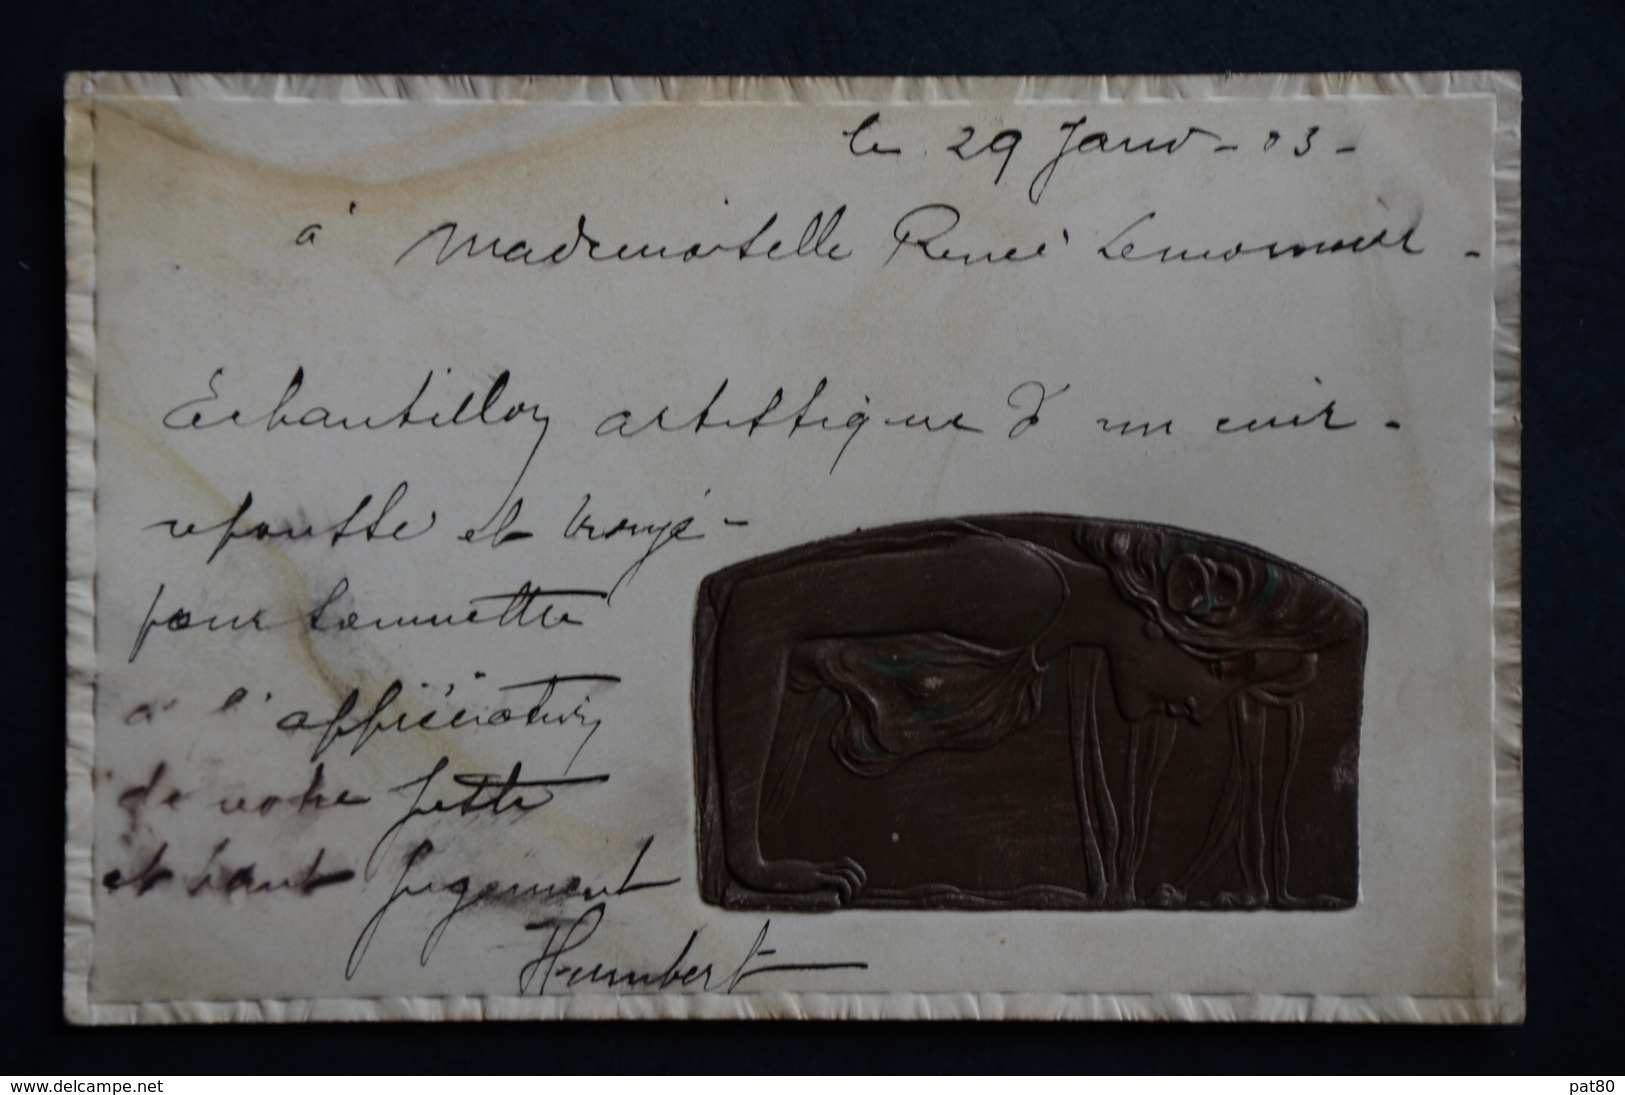 le 29 Janv - 03 -
à Mademoiselle Renée Lemonnier -
Échantillon artistique d'un cuir -
repoussé et
pour soumettre
à l'appréciation
de votre juste
et haut jugement
Humbert
www.delcampe.net
pat80